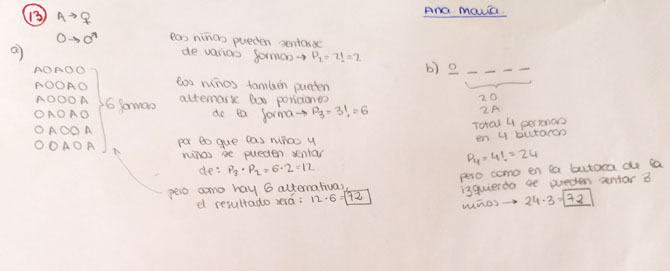 Ana María.
13 A → ♀
O → ♂
a)
AOAOO
AOOAO
AOOOA
OAOAO
OAOOA
OOAOA
6 formas
Las niñas pueden sentarse
de varias formas → P₂ = 2! = 2
Los niños también pueden
alternarse las posiciones
de la forma → P₃ = 3! = 6
por lo que las niñas y
niños se pueden sentar
de: P₃ · P₂ = 6 · 2 = 12.
pero como hay 6 alternativas,
el resultado será: 12 · 6 = 72
b) O _ _ _ _
2O
2A
Total 4 personas
en 4 butacas
P₄ = 4! = 24
pero como en la butaca de la
izquierda se pueden sentar 3
niños → 24 · 3 = 72